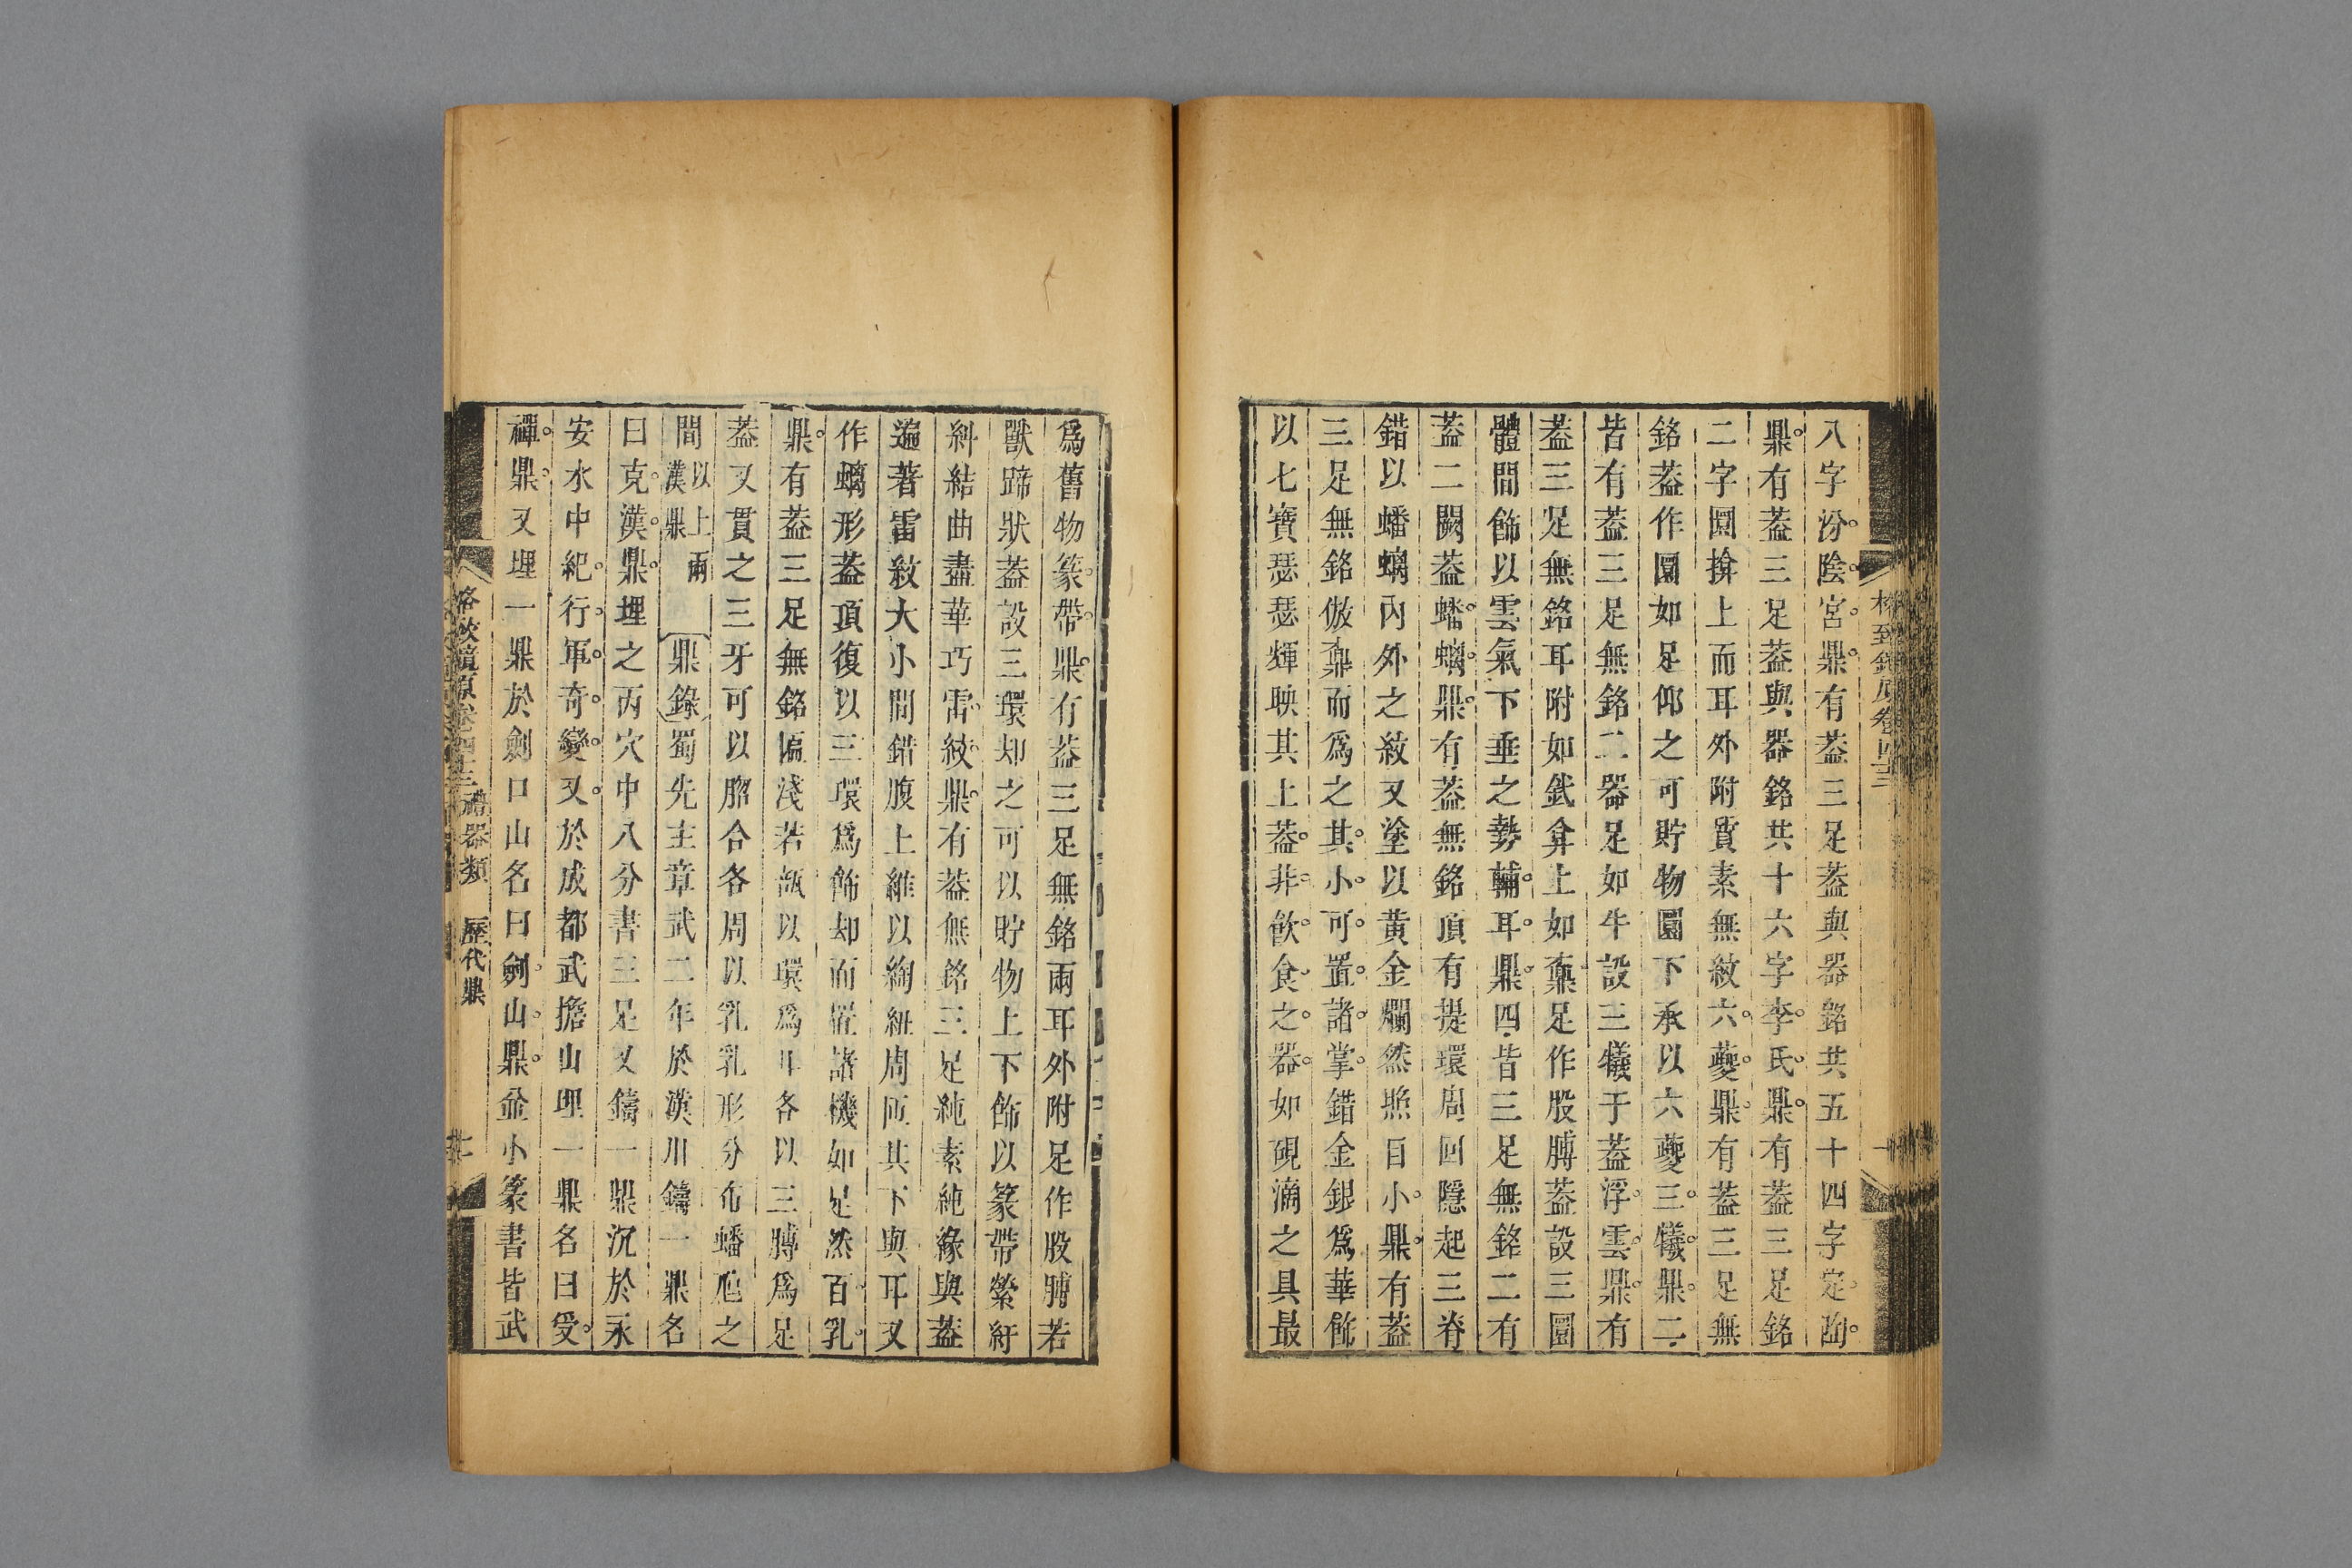 八字汾陰宮鼎有葢三足葢與器銘共五十四字定陶
鼎有葢三足葢與器銘共十六字李氏鼎有葢三足銘
二字圜揜上而耳外附質素無紋六夔鼎有葢三足無
銘葢作圜如足仰之可貯物圜下承以六夔三犧鼎二
皆有葢三足無銘二器足如牛設三犧于葢浮雲鼎有
葢三足無銘耳附如弐弇上如鼐足作股膞葢設三圜
體間飾以雲氣下垂之勢輔耳鼎四皆三足無銘二有
葢二闕葢蟠螭鼎有葢無銘頂有提環周回隱起三脊
錯以蟠螭內外之紋又塗以黃金爛然照目小鼎有葢
三足無銘倣鼐而爲之其小可置諸掌錯金銀爲華飾
以七寶瑟瑟輝映其上葢非飮食之器如硯滴之具最
爲舊物篆帶鼎有葢三足無銘兩耳外附足作股膊若
獸蹄狀葢設三環却之可以貯物上下飾以篆帶縈紆
糾結曲盡華巧雷紋鼎有葢無銘三足純素純緣與葢
遍著雷紋大小間錯腹上維以綯紐周匝其下與耳又
作螭形葢頂復以三環爲飾却而置諸機如足然百乳
鼎有葢三足無銘匾淺若瓿以環爲耳各以三膊爲足
葢又貫之三牙可以脗合各周以乳乳形分布蟠虺之
間以上兩漢鼎 鼎錄蜀先主章武二年於漢川鑄一鼎名
曰克漢鼎埋之丙穴中八分書三足又鑄一鼎沉於永
安水中紀行軍奇變又於成都武擔山埋一鼎名曰受
禪鼎又埋一鼎於劍口山名曰劍山鼎並小篆書皆武
格致鏡原卷四十三 禮器類 歷代鼎